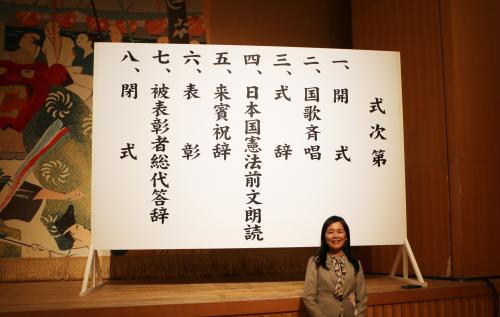 式次第
一、開式
二、国歌斉唱
三、式辞
四、日本国憲法前文朗読
五、来賓祝辞
六、表彰
七、被表彰者総代答辞
八、閉式